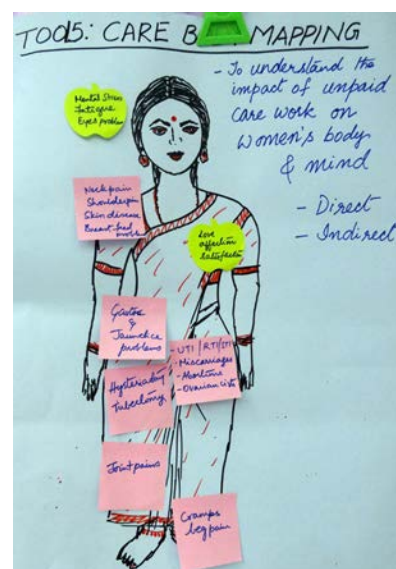 TOOL5: CARE B MAPPING
- To understand the
impact of unpaid
care work on
women's body
& mind
- Direct
- Indirect
Mental Stress
Fatigue
Eyes problem
Neck pain
Shoulder pain
Skin disease
Breast feed
Love
affection
satisfaction
Gastric
&
Jaundice
problems
- UTI / RTI/STI
- Miscarriages
- Abortion
- Ovarian Cists
Hysterictomy
Tubertomy
Joint pains
Cramps
leg pain